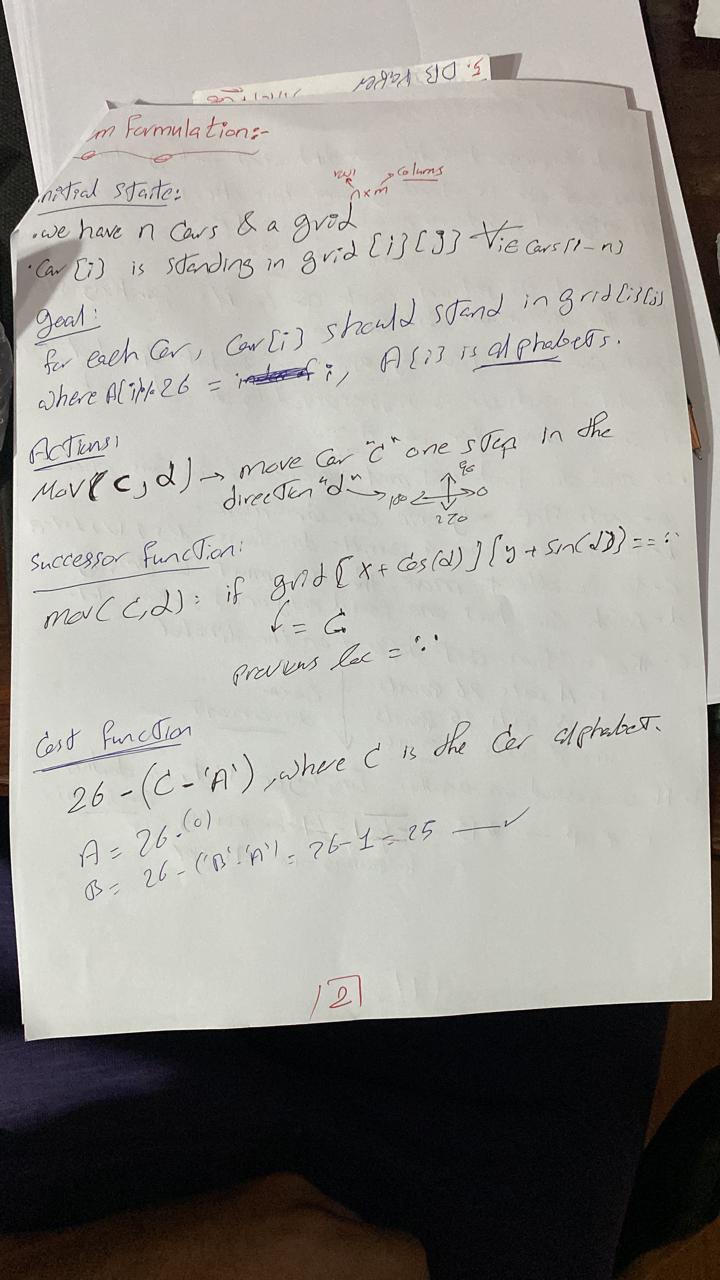 5. DB Paper
m Formulation:-
nitial state:
row n x m colums
. we have n Cars & a grid
. Car [i] is standing in grid [i][j] ∀i∈ Cars[1-n]
goal:
for each Car, Car[i] should stand in grid[i][j]
where A[i]%26 = i, A[i] is alphabets.
Actions:
Mov(c,d) → move Car "C" one step in the
direction "d" → 180 90 0 270
Successor function:
mov(c,d): if grid [x+cos(d)][y+sin(d)] == '.'
= C
Previous loc = '.'
Cost function
26 - (C - 'A'), where C is the Car alphabet.
A = 26 - (0)
B = 26 - ('B' - 'A') = 26 - 1 = 25
2